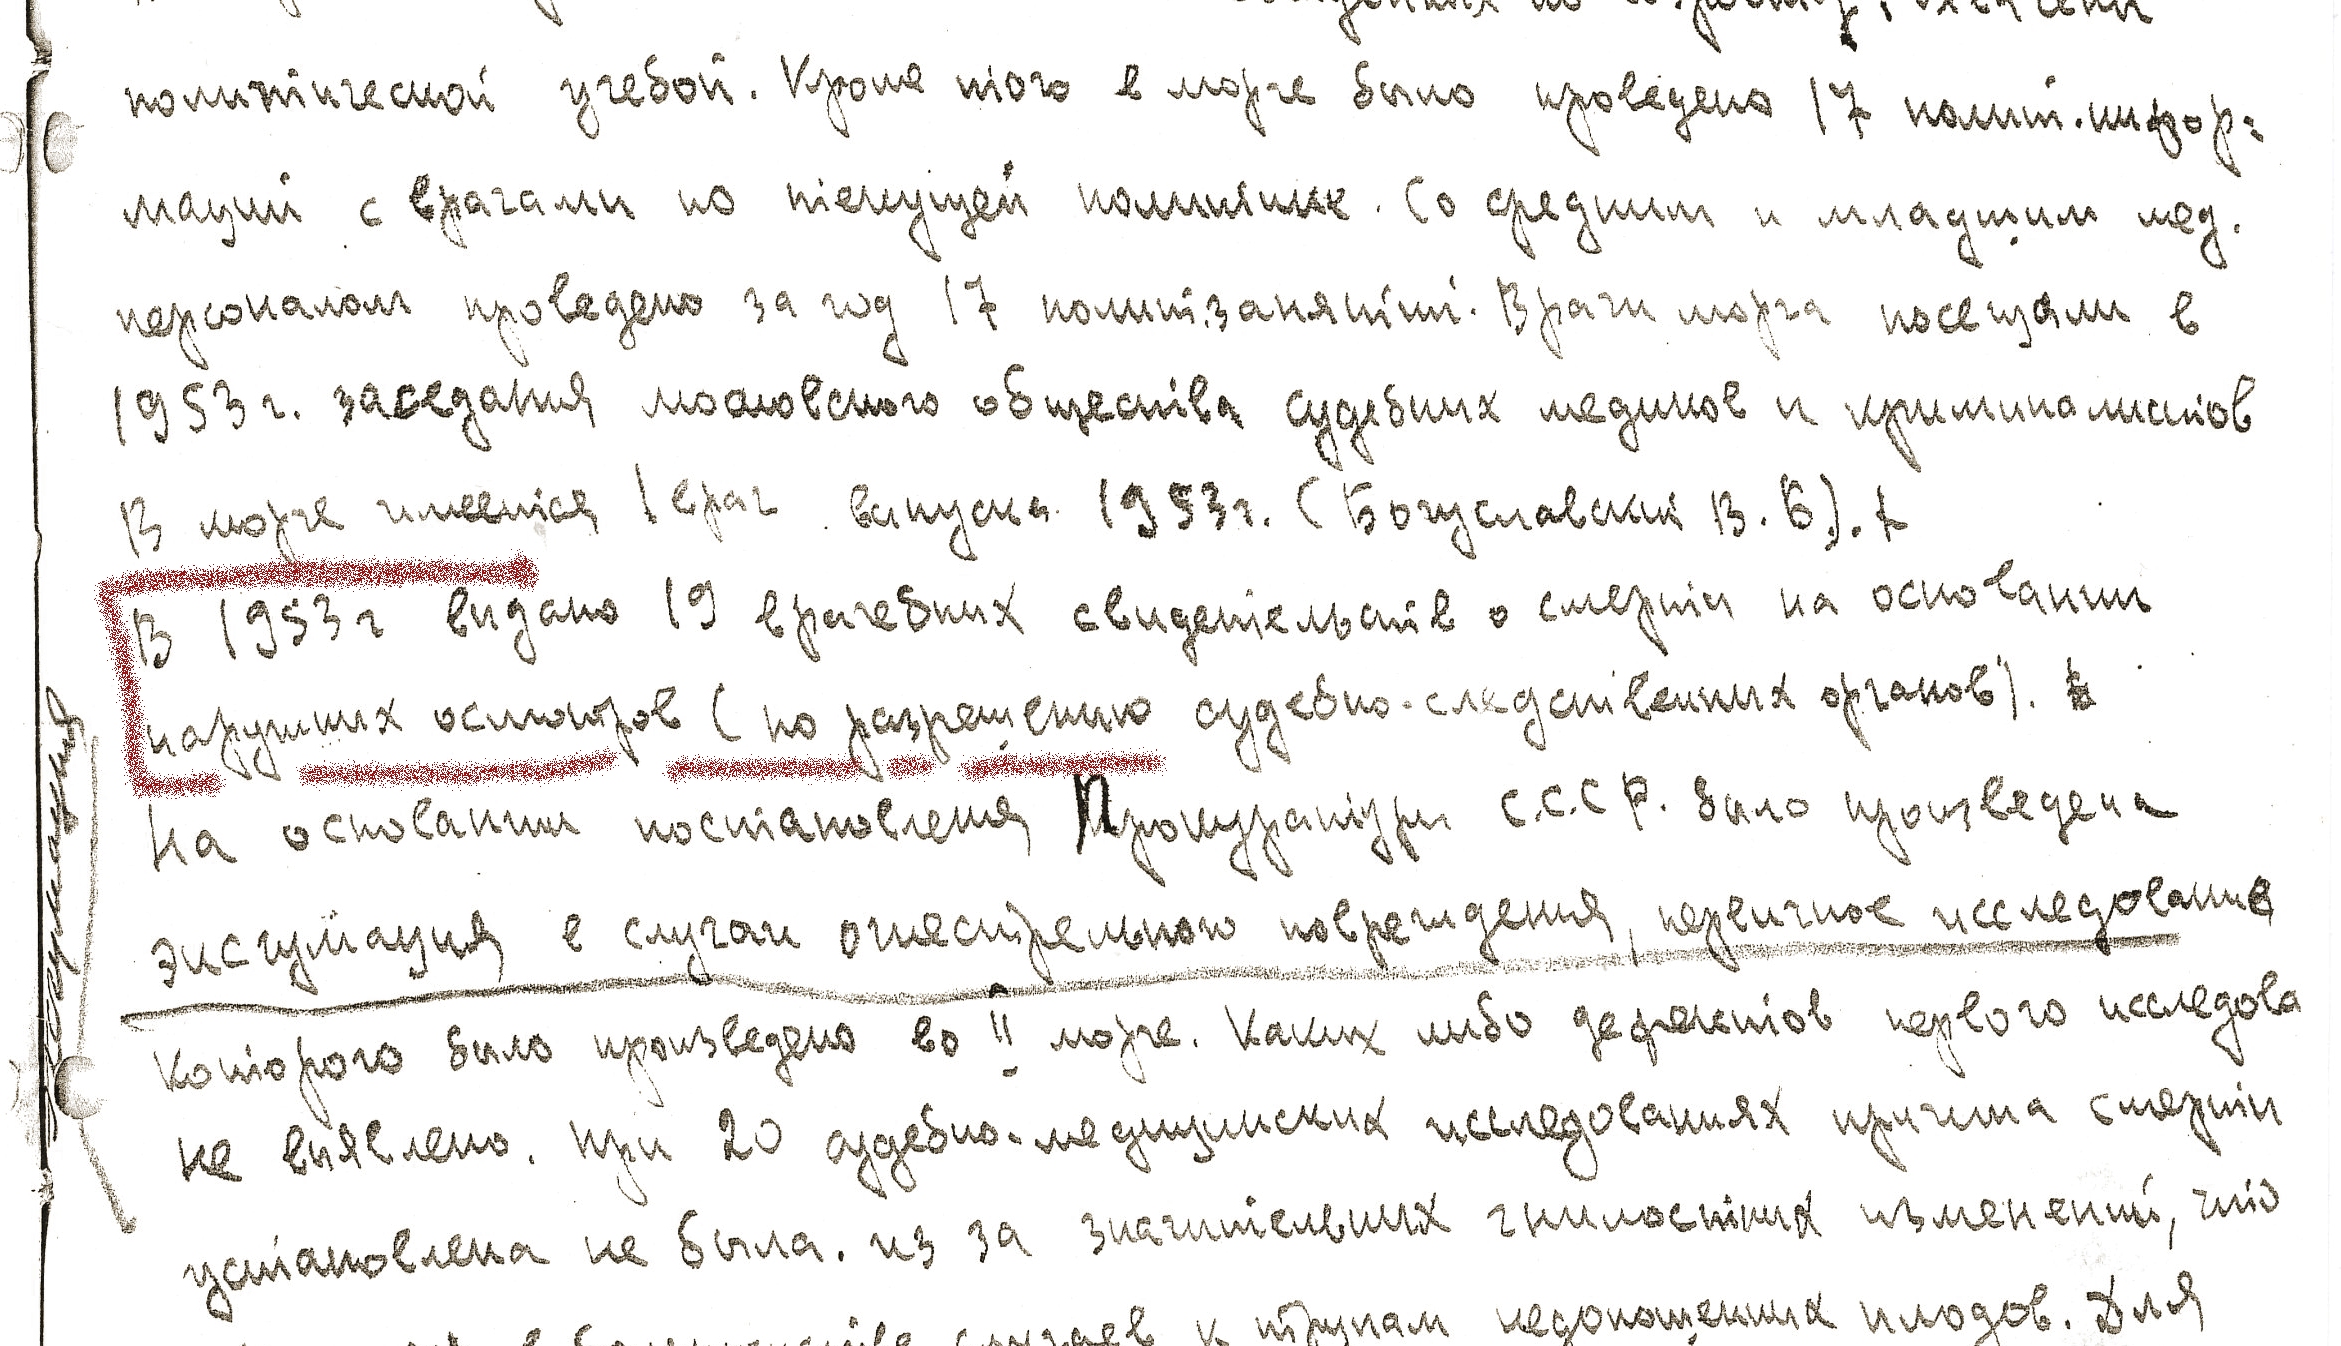 политической учебой. Кроме того в морге было проведено 17 полит.инфор=
маций с врачами по текущей политике. Со средним и младшим мед.
персоналом проведено за год 17 полит.занятий. Врачи морга посещали в
1953г. заседания московского общества судебных медиков и криминалистов
В морге имеется 1 врач выпуска 1953г. (Богуславский В.Б).
В 1953г выдано 19 врачебных свидетельств о смерти на основании
наружних осмотров (по разрешению судебно-следственных органов).
На основании постановления Прокуратуры С.С.С Р. было произведена
эксгумация в случаи огнестрельного повреждения, первичное исследование
которого было произведено во II морге. Каких либо дефектов первого исследова
не выявлено. При 20 судебно-медицинских исследованиях причина смерти
установлена не была. из за значительных гнилостных изменений, что
в большинстве случаев к трупам недоношенных плодов. Для
эксгумация